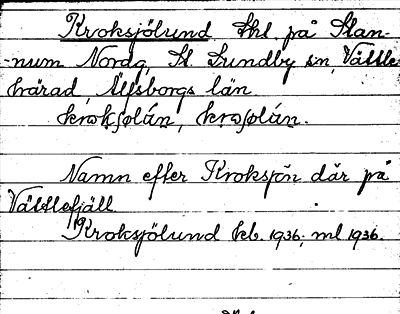 Kroksjölund Shl på Stan-
-num Nordg, St. Lundby sn, Vättle
härad, Älfsborgs län.
Namn efter Kroksjön där på
Vättlefjäll
Kroksjölund kb. 1936, ml 1936.